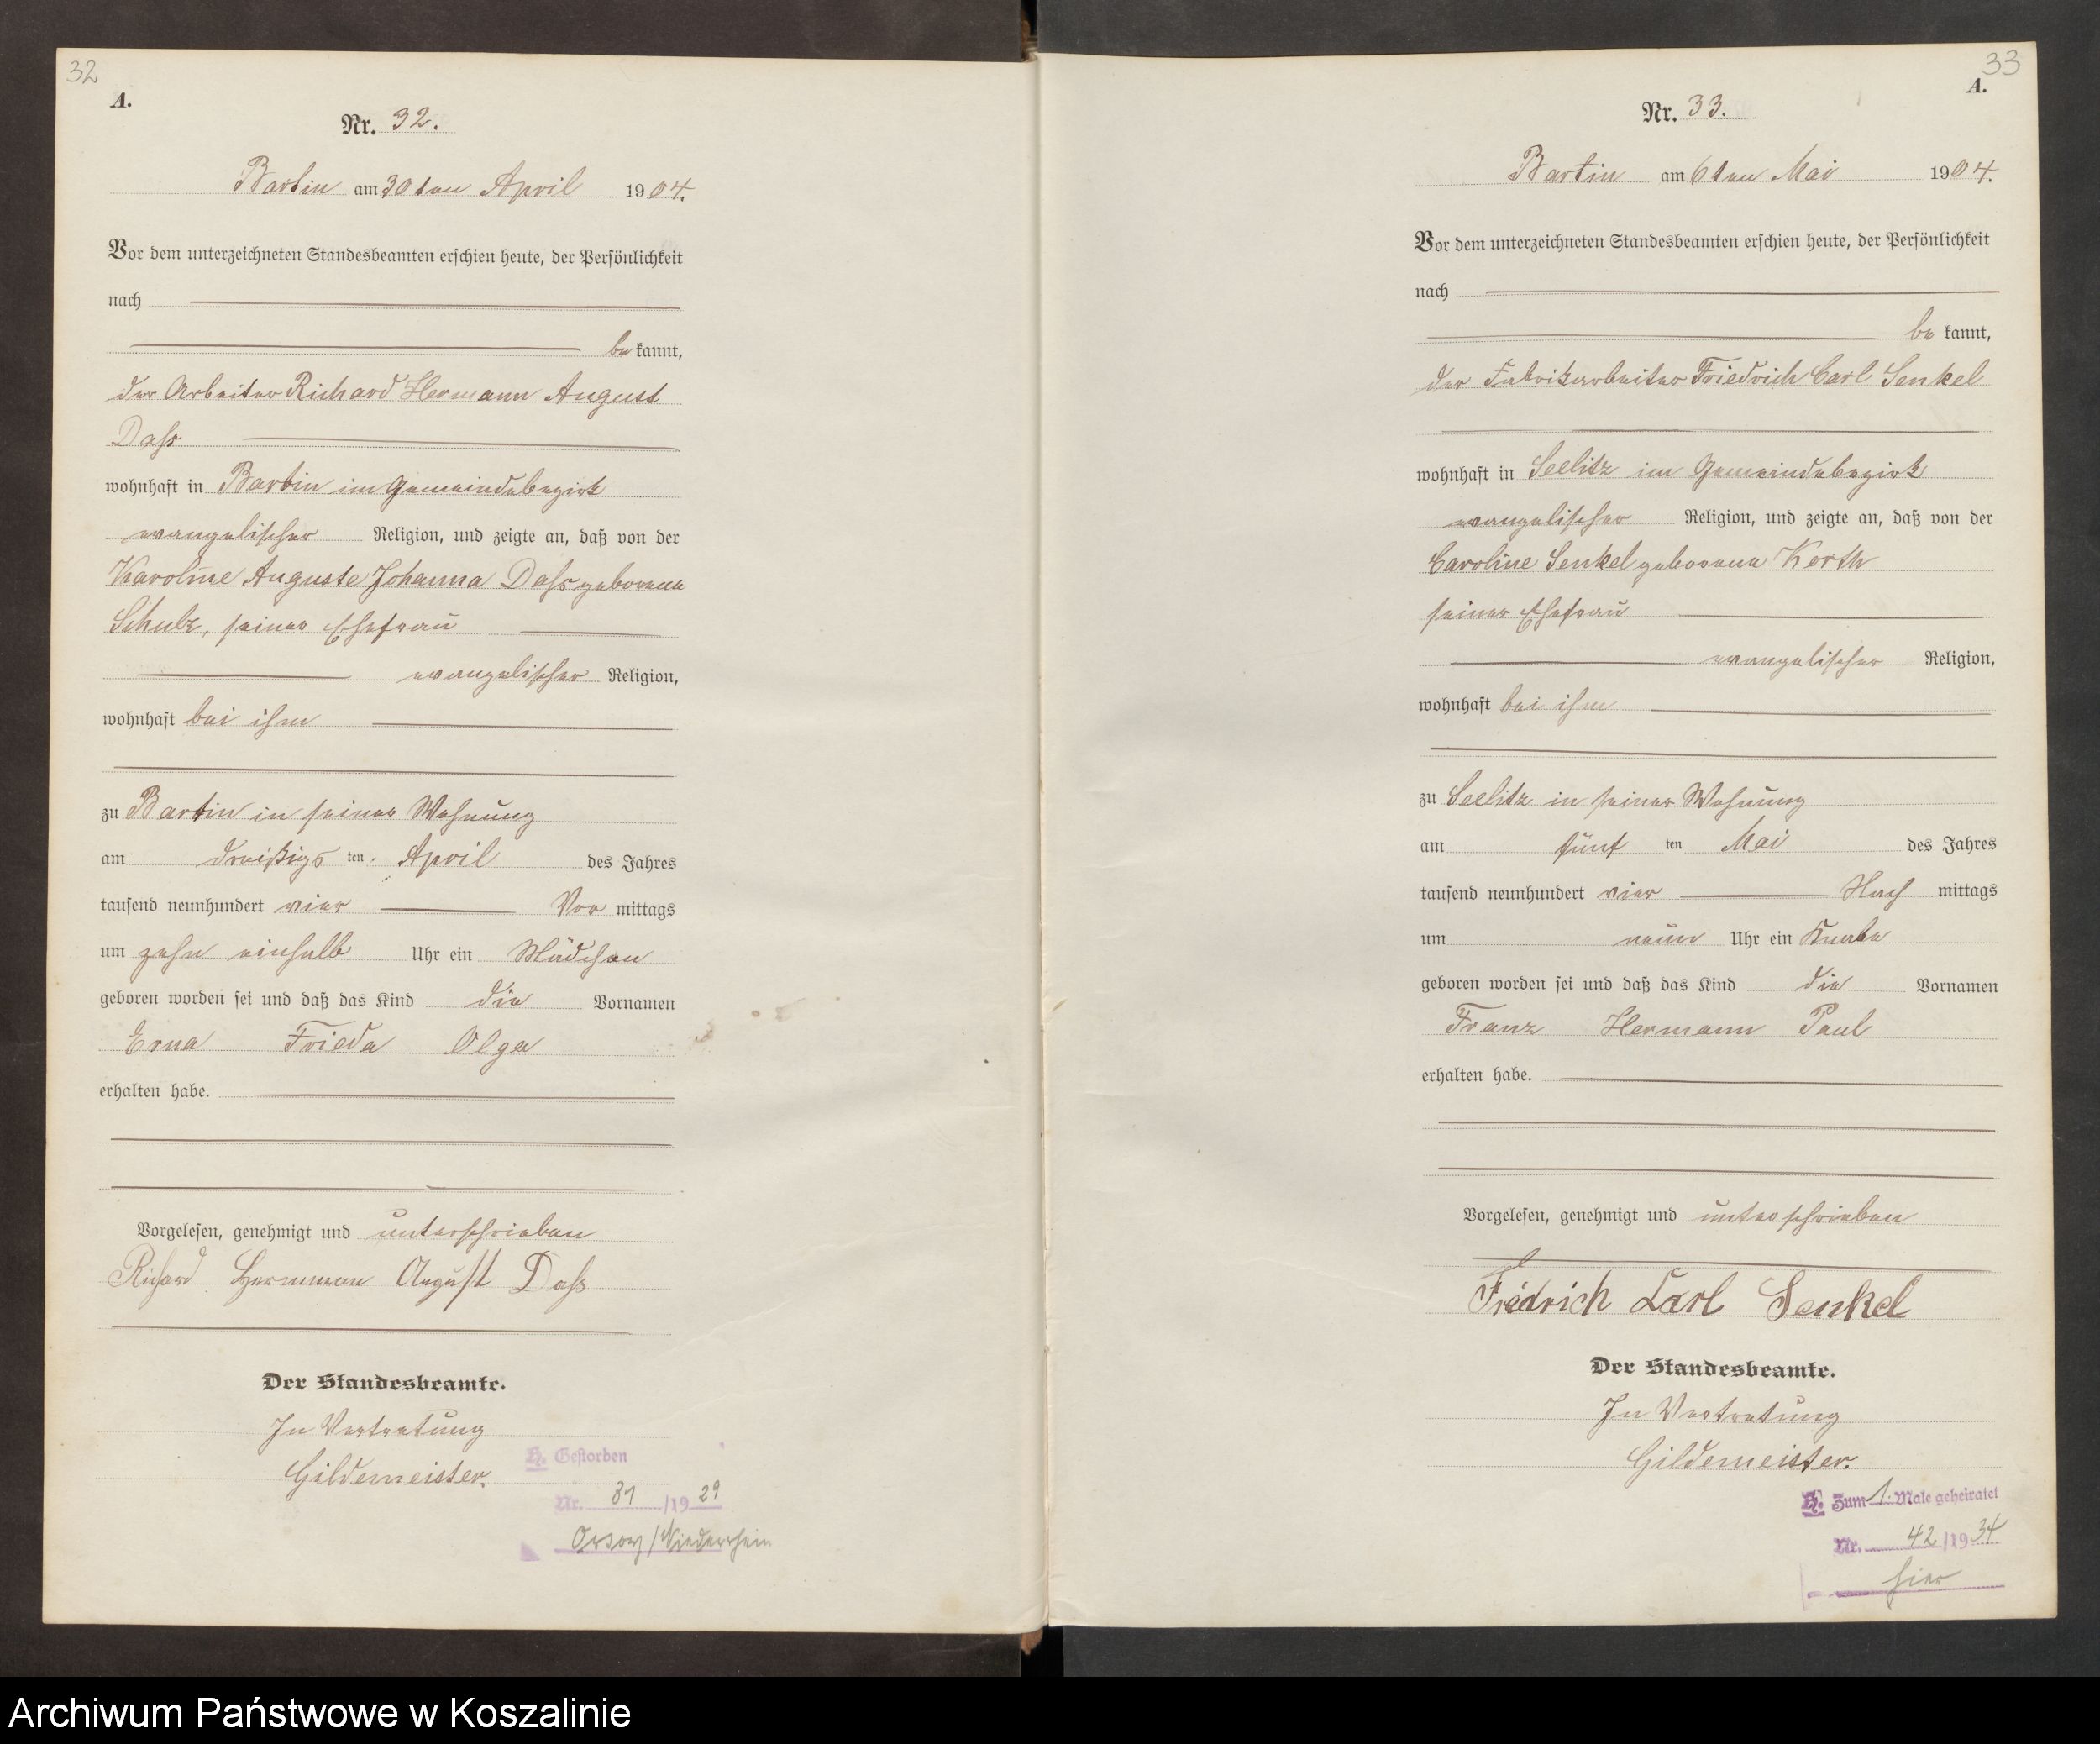 32
A.
Nr. 32.
Bartin am 30ten April 1904.
Vor dem unterzeichneten Standesbeamten erschien heute, der Persönlichkeit
nach
be kannt,
der Arbeiter Richard Hermann August
Dass
wohnhaft in Bartin im Gemeindebezirk
evangelischer Religion, und zeigte an, daß von der
Karoline Auguste Johanna Dass geborene
Schulz, seiner Ehefrau
evangelischer Religion,
wohnhaft bei ihm
zu Bartin in seiner Wohnung
am dreißigs ten. April des Jahres
tausend neunhundert vier Vor mittags
um zehn einhalb Uhr ein Mädchen
geboren worden sei und daß das Kind die Vornamen
Erna Frieda Olga
erhalten habe.
Vorgelesen, genehmigt und unterschrieben
Richard Hermman August Dass
Der Standesbeamte.
In Vertretung
Gildemeister.
H. Gestorben
Nr. 31 /19 29
Orsoy/Niederrhein
33
A.
Nr. 33.
Bartin am 6ten Mai 1904.
Vor dem unterzeichneten Standesbeamten erschien heute, der Persönlichkeit
nach
be kannt,
der Fabrikarbeiter Friedrich Carl Senkel
wohnhaft in Seelitz im Gemeindebezirk
evangelischer Religion, und zeigte an, daß von der
Caroline Senkel geborene Korth
seiner Ehefrau
evangelischer Religion,
wohnhaft bei ihm
zu Seelitz in seiner Wohnung
am fünf ten Mai des Jahres
tausend neunhundert vier Nach mittags
um neun Uhr ein Knabe
geboren worden sei und daß das Kind die Vornamen
Franz Hermann Paul
erhalten habe.
Vorgelesen, genehmigt und unterschrieben
Friedrich Carl Senkel
Der Standesbeamte.
In Vertretung
Gildemeister.
H. Zum 1. Male geheiratet
Nr. 42 /19 34
hier
Archiwum Państwowe w Koszalinie